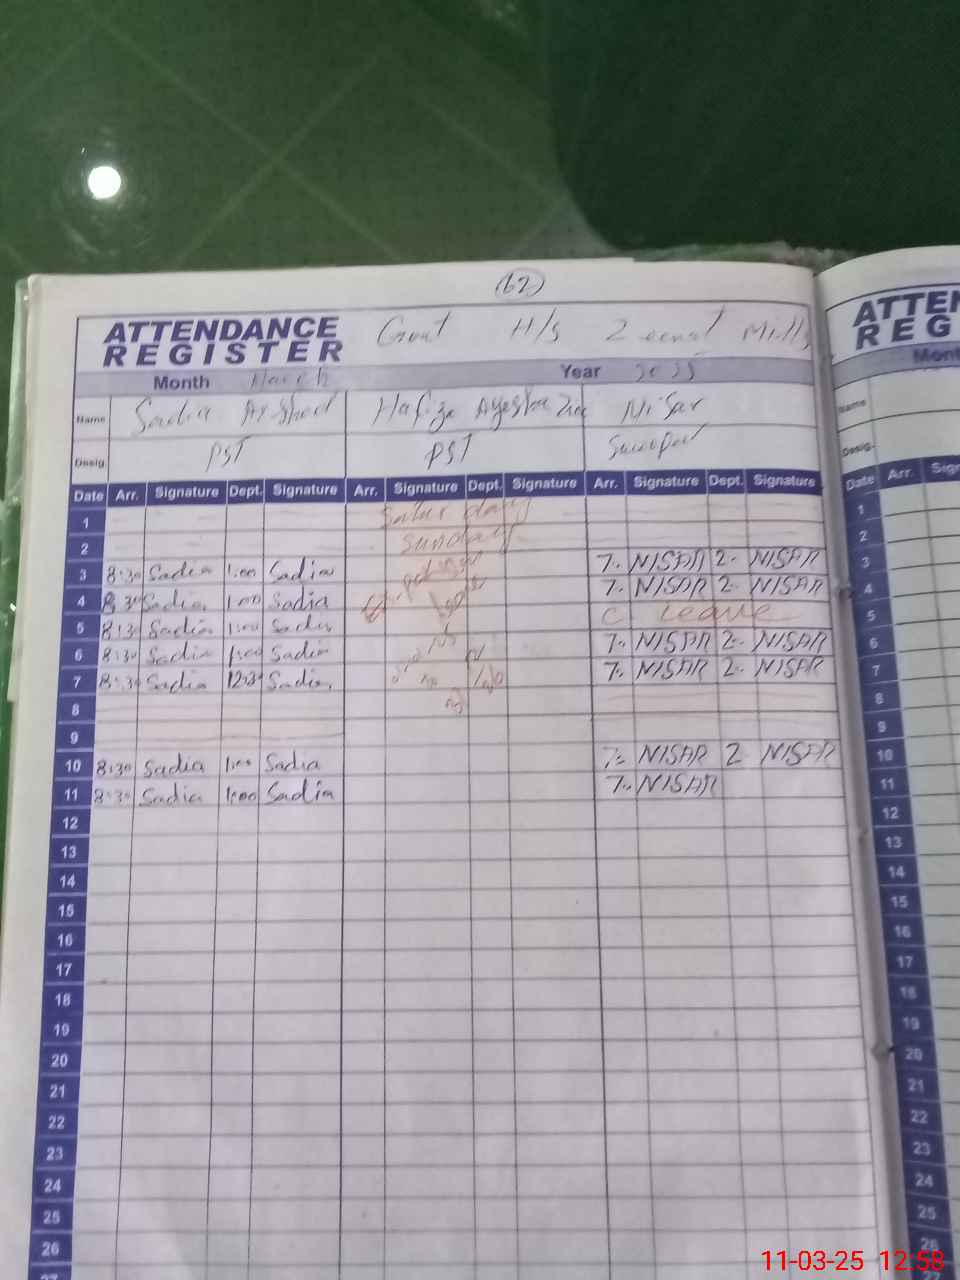 62
ATTENDANCE REGISTER Govt H/S Zeenat Mills
Month March Year 2025
Name Sadia Arshad Hafiza Ayesha Nisar
Desig. PST PST Sweeper
Date Arr. Signature Dept. Signature Arr. Signature Dept. Signature Arr. Signature Dept. Signature
1 Saturday
2 Sunday
3 8:30 Sadia 1:00 Sadia 7- NISAR 2- NISAR
4 8:30 Sadia 1:00 Sadia 7- NISAR 2- NISAR
5 8:30 Sadia 1:00 Sadia C. Leave
6 8:30 Sadia 1:00 Sadia 7- NISAR 2- NISAR
7 8:30 Sadia 12:30 Sadia 7- NISAR 2- NISAR
8
9
10 8:30 Sadia 1:00 Sadia 7- NISAR 2- NISAR
11 8:30 Sadia 1:00 Sadia 7- NISAR
12
13
14
15
16
17
18
19
20
21
22
23
24
25
26
27
ATTEN
REG
Month
Name
Desig.
Date Arr. Sig
1
2
3
4
5
6
7
8
9
10
11
12
13
14
15
16
17
18
19
20
21
22
23
24
25
26
27
11-03-25 12:58